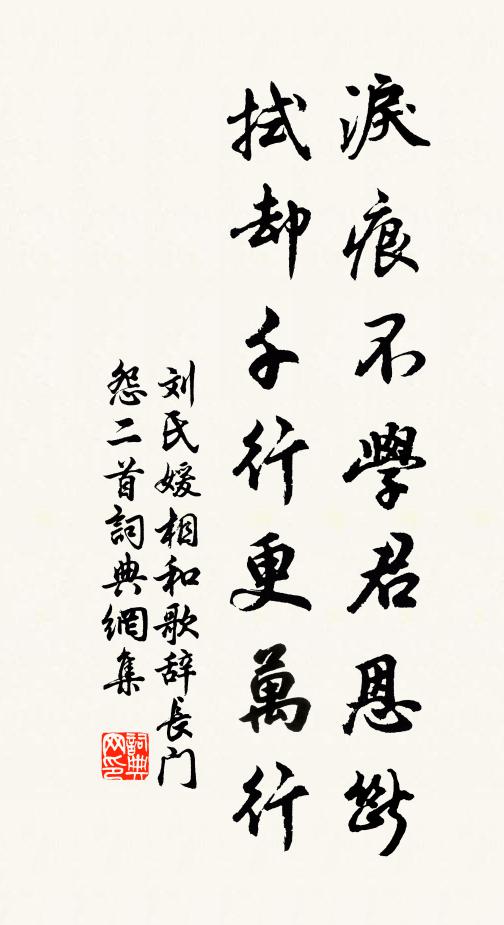 淚痕不學君恩斷
拭却千行更萬行
刘氏媛相和歌辞長门
怨二首詞典網集
詞典
网印